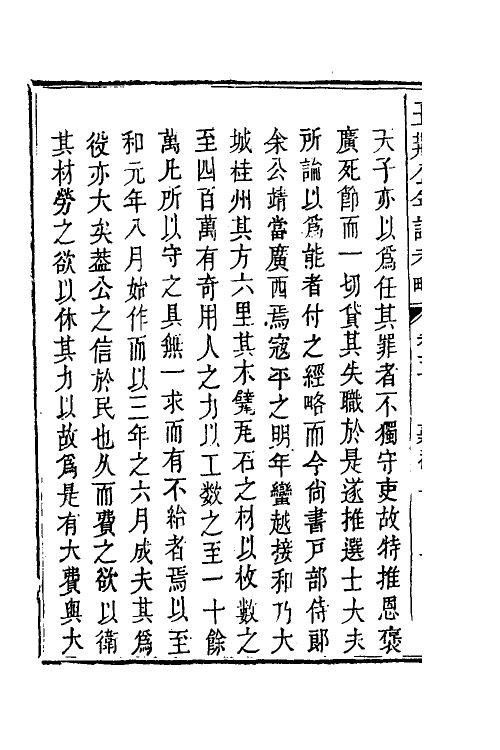 天子亦以爲任其罪者不獨守吏故特推恩襃
廣死節而一切貸其失職於是遂推選士大夫
所論以爲能者付之經略而今尙書戸部侍郞
余公靖當廣西焉寇平之明年蠻越接和乃大
城桂州其方六里其木甓瓦石之材以枚數之
至四百萬有奇用人之力以工數之至一十餘
萬凡所以守之具無一求而有不給者焉以至
和元年八月始作而以三年之六月成夫其爲
役亦大矣葢公之信於民也久而費之欲以衞
其材勞之欲以休其力以故爲是有大費與大